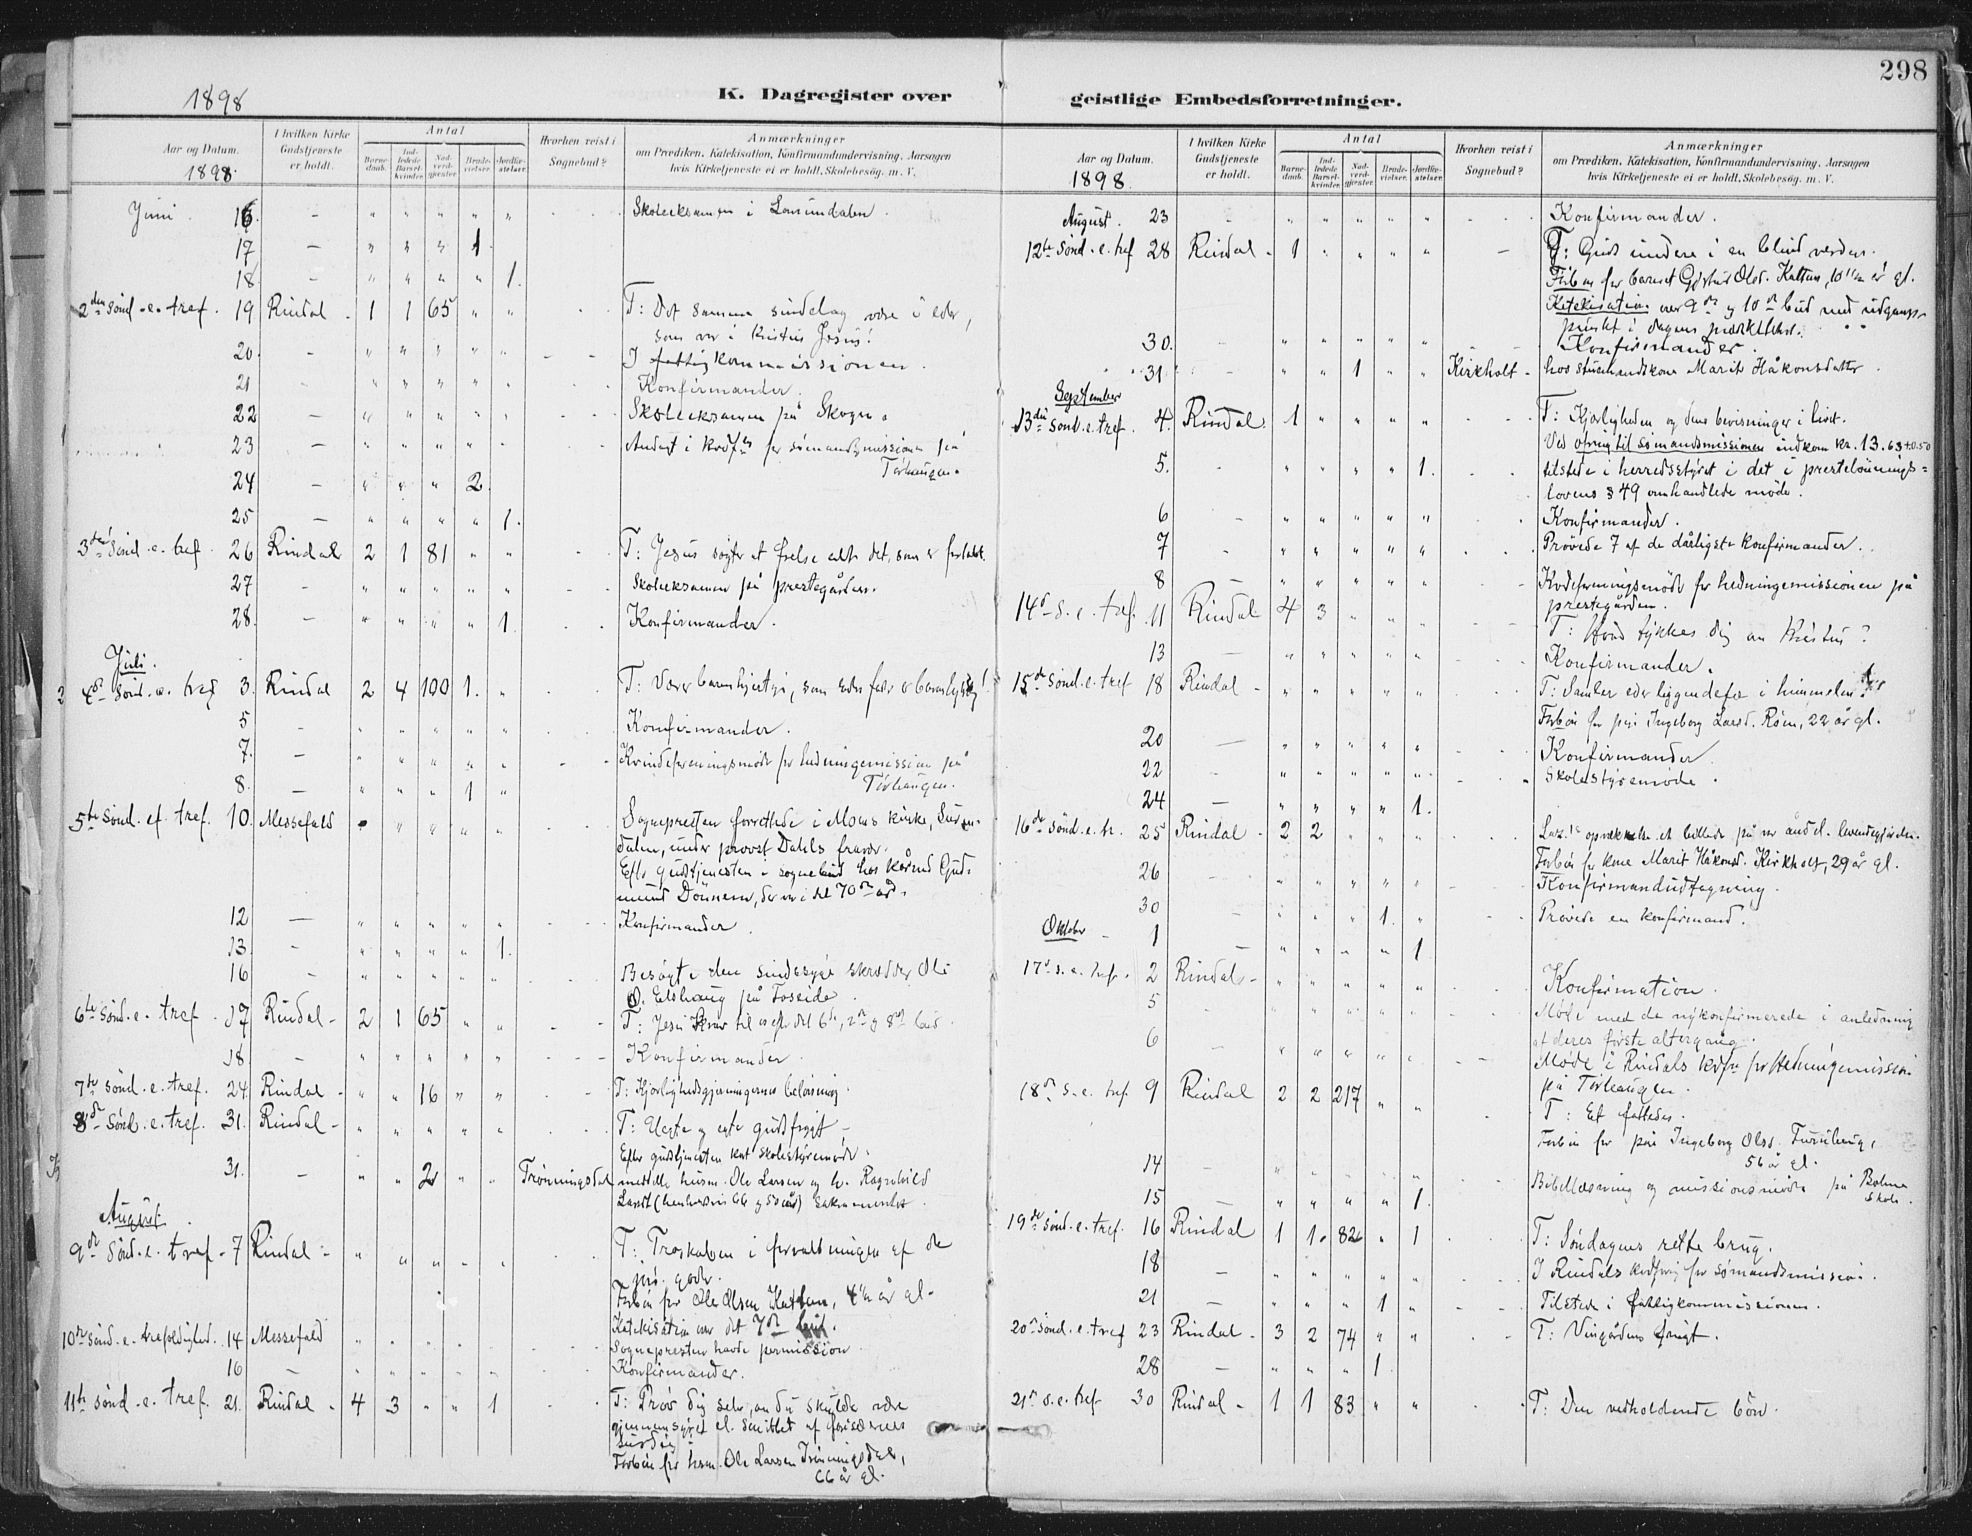 298
1898
K. Dagregister over geistlige Embedsforretninger.
Aar og Datum. 1898.
I hvilken Kirke Gudstjeneste er holdt.
Antal
Barnedaab.
Indledede Barselkvinder.
Nadverdgjester.
Brudevielser.
Jordfæstelser.
Hvorhen reist i Sognebud?
Anmærkninger
om Prædiken, Katekisation, Konfirmandundervisning, Aarsagen
hvis Kirketjeneste ei er holdt, Skolebesøg. m. V.
Juni 16. - " " " " " Skoleeksamen i Lomundalen.
17 - " " " 1.
18 - " " " " 1.
2den Sönd. e. tref. 19 Rindal 1 1 65 " " T: Det samme sindelag være i eder,
som var i Kristus Jesus!
20. - " " " " " I fattigkommissionen.
21 " " " " " Konfirmander.
22 - " " " " Skoleeksamen på Skogen.
23 - " " " " Andagt i kvdfg for sømandsmissionen på
Torhaugen.
24 - " " " 2.
25 - " " " " 1.
3die Sönd. e. tref. 26 Rindal 2 1 81 " " T: Jesus søgte at frelse alt det, som er fortabt.
27 - " " " " " Skoleeksamen på prestegården.
28. - " " " " 1. Konfirmander.
Juli.
4de Sönd. e. tref 3. Rindal 2 4 100 1. " T: Værer barmhjertige, som eders fader er barmhjertig!
5 - " " " " " Konfirmander.
7. - " " " " " Kvindeforeningsmöde for hedningemission på
Torhaugen.
8. - " " " 1 "
5te Sönd. ef. tref. 10. Messefald " " " " Sognepresten forrettede i Moens kirke, Suren-
dalen, under provst Dahls fravær.
Efter gudstjenesten i sognebud hos kårmd Gud-
mund Dönnem, der var i det 70de år.
12 - " " " " " Konfirmander.
13. - " " " " 1.
16 - " " " " " Besøgte den sindssyge skrædder Ole
O. Elshaug på Fosseide.
6te Sönd. e. tref. 17 Rindal - 2 1 65 " " T: Jesu krav til os efter det 6te, 7de og 8de bud.
18. - " " " " " Konfirmander.
7de sönd. e. tref. 24 Rindal - " " 16 " " T: Kjærlighedsgjerningernes belönning.
8de Sönd. e. tref. 31. Rindal - " " " " " T: Uegte og egte gudsfrygt -
Efter gudstjenesten kort skolestyremöde.
31. - " " 2 " " Trönningsdal meddelte husm. Ole Larsen og h. Ragnhild
Larsdt (henholdsvis 66 og 55 år) sakramentet.
August.
9de Sönd. e. tref - 7 Rindal - " " " " " T: Troskaben i forvaltningen af de
jord. goder.
Forbön for Ole Olsen Kattem, 4 år gl.
Katekisation over det 7de bud.
10de Sönd. e. trefoldighed. 14 Messefald " " " " Sognepresten havde permission.
16 - " " " " " Konfirmander.
11te sönd. e. tref. 21. Rindal - 4 3 " " 1 T: Pröv dig selv, om du skulde være
gjennemsyret el. besmittet af farisæernes
surdeig!
Forbön for husm. Ole Larsen Trönningsdal,
66 år gl.
Aar og Datum. 1898.
I hvilken Kirke Gudstjeneste er holdt.
Antal
Barnedaab.
Indledede Barselkvinder.
Nadverdgjester.
Brudevielser.
Jordfæstelser.
Hvorhen reist i Sognebud?
Anmærkninger
om Prædiken, Katekisation, Konfirmandundervisning, Aarsagen
hvis Kirketjeneste ei er holdt, Skolebesøg. m. V.
August. 23 " " " " " Konfirmander.
12te Sönd. e. tref 28 Rindal - 1 " " " " T: Guds undere i en blind verden.
Forbön for barnet Olsd. Kattem, 10 år gl.
Katekisation over 9de og 10de bud med udgangs-
punkt i dagens prædiketekst.
30. - " " " " " Konfirmander.
31. - " " 1 " " Kirkholt - hos stuemandskone Marit Håkonsdatter.
September
13de Sönd. e. tref. 4. Rindal. 1 " " " " T: Kjærligheden og dens bevisninger i livet.
Ved ofring til sømandsmissionen indkom kr. 13.63 + 0.50
5. " " " " 1. tilstede i herredsstyret i det i prestelönnings-
lovens § 49 omhandlede möde.
6 - " " " " " Konfirmander.
7 - " " " " " Prövede 7 af de dårligste konfirmander.
8 - " " " " " Kvdforeningsmöde for hedningemissionen på
prestegården.
14de S. e. tref. 11 Rindal 4 3 " " " T: Hvad tykkes dig om Kristus?
13 - Konfirmander.
15de Sönd. e. tref 18 Rindal - " " " " " T: Samler eder liggendefæ i himmelen!
Forbön for pige Ingeborg Larsd. Röen, 22 år gl.
20 - " " " " " Konfirmander
22 - " " " " " Skolestyremöde.
24 - " " " " 1.
16de Sönd. e. tr. 25 Rindal - 2 2 " " " opvækkelse et billede på vor åndel. levendegjörelse.
Forbön for kone Marit Håkonsd. Kirkholt, 29 år gl.
26 - " " " " " Konfirmandudtagning.
30 - " " " 1. " Prövede en konfirmand.
Oktober - 1 - " " " " 1
17de s. e. tref. 2 Rindal - " " " " " Konfirmation.
5 " " " " " Möde med de nykonfirmerede i anledning
af deres förste altergang.
6 - " " " " " Möde i Rindals kvdfg for Hedningemission
på Torhaugen.
18de S. e. tref. 9 Rindal 2 2 217 " " T: Et fattedes.
Forbön for pige Ingeborg Olsd. Furuhaug,
56 år gl.
14 - " " " " " Bibellæsning og missionsmöde på Bolme
skole.
15 - " " " " 1.
19de Sönd. e. tref. 16 Rindal 1 1. 82 " 1 T: Söndagens rette brug.
18 - " " " " " I Rindals kvdforng for sømandsmission.
21 - " " " 1 " Tilstede i fattigkommissionen.
20de Sönd. e. tref 23 Rindal - 3 2 74 " " T: Vingårdens frugt.
28 - " " " 1.
21de s. e. tref 30 Rindal - 1 1 83 " " T: Den vedholdende bön.